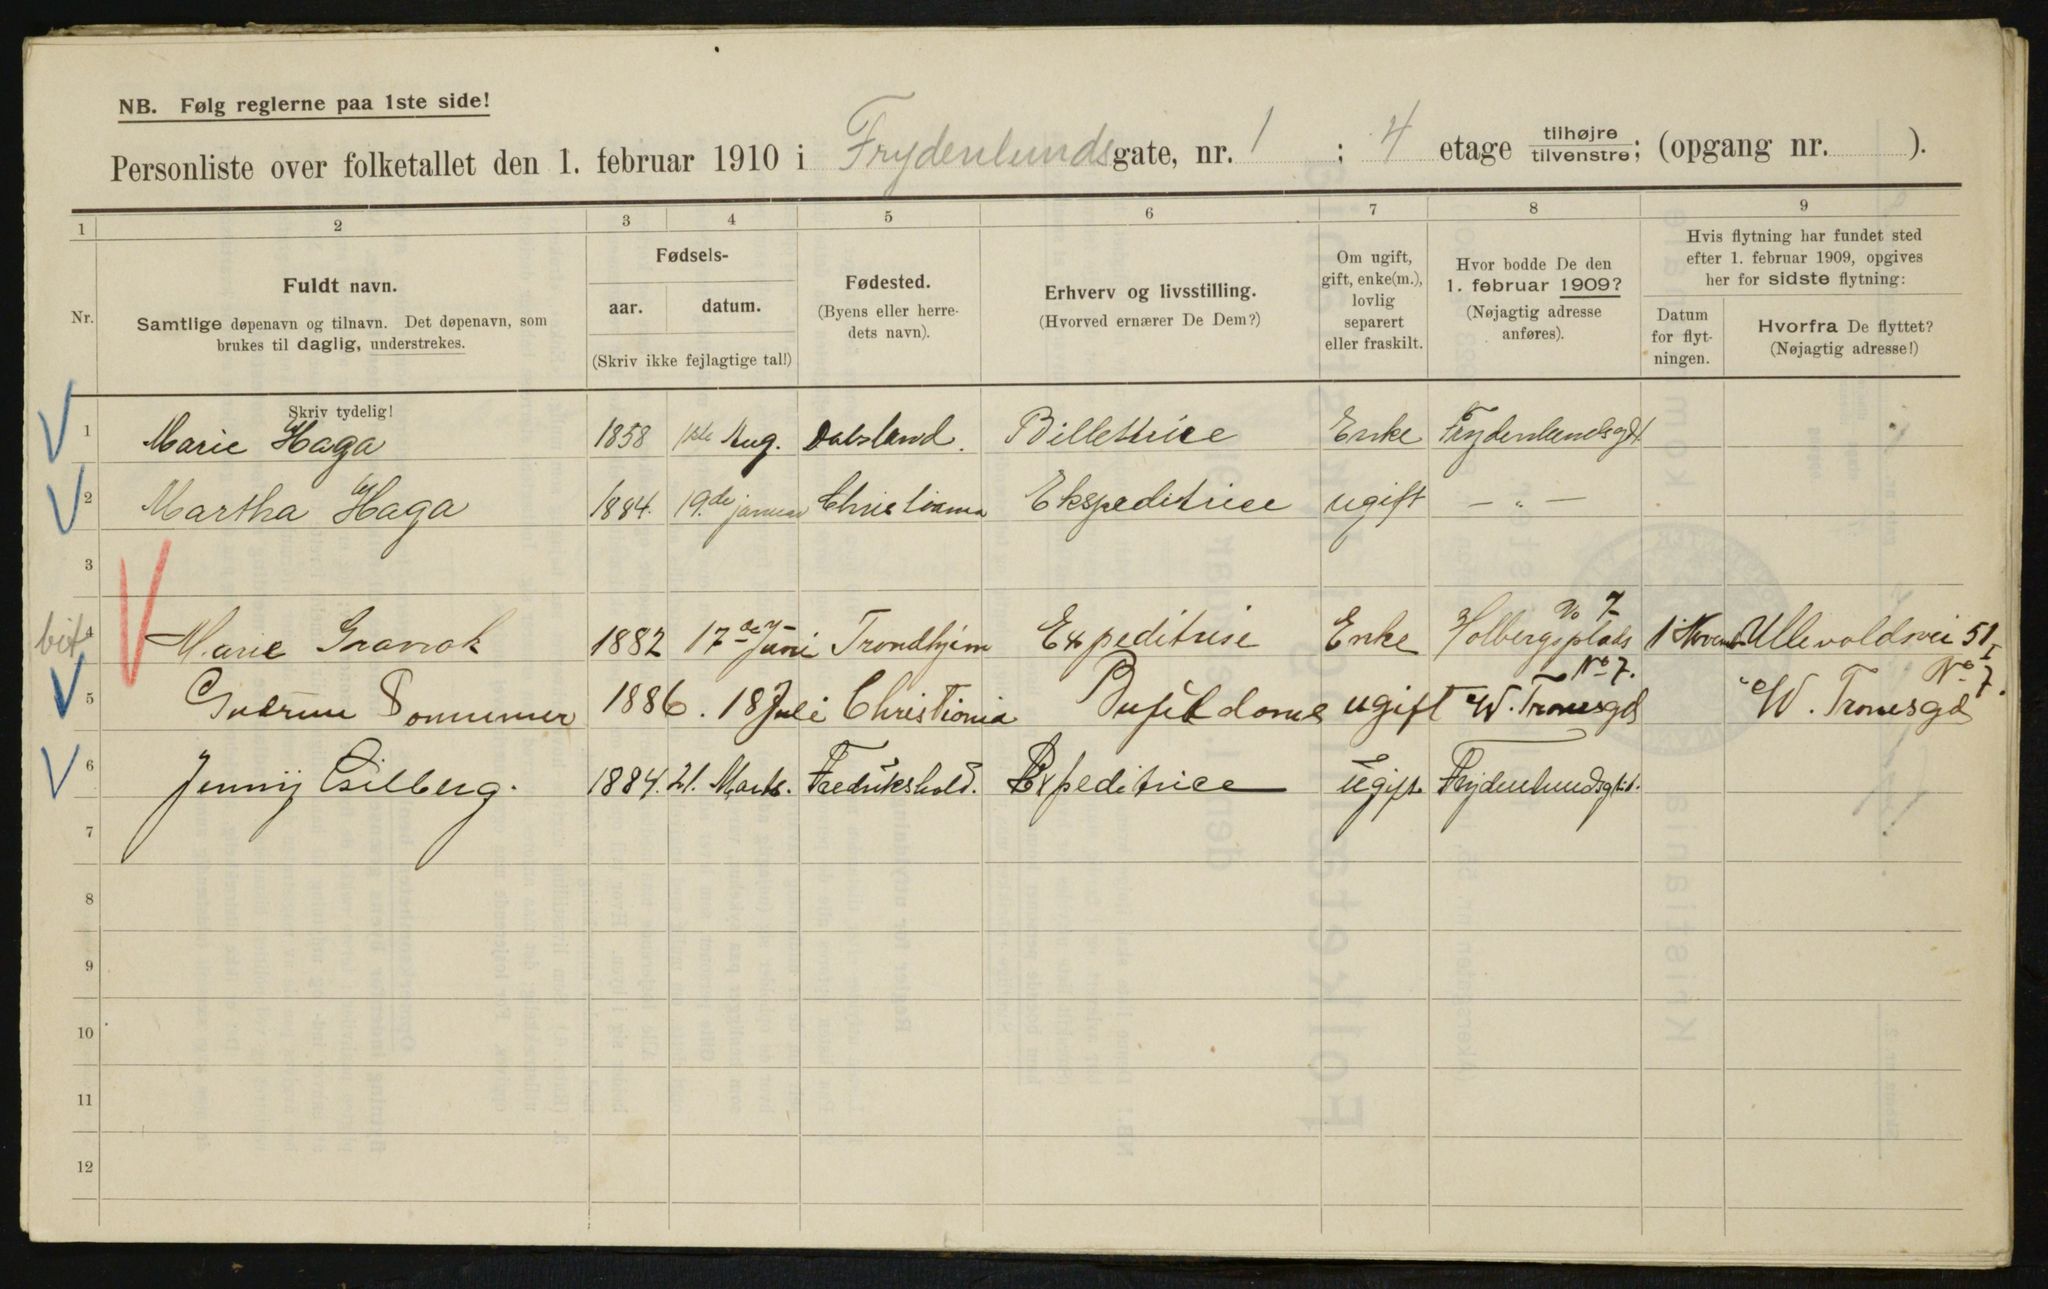 NB. Følg reglerne paa 1ste side!
Personliste over folketallet den 1. februar 1910 i Frydenlundsgate, nr. 1 ; 4 etage tilhøjre/tilvenstre; (opgang nr. ).
1 2 3 4 5 6 7 8 9
Nr.
Fuldt navn.
Samtlige døpenavn og tilnavn. Det døpenavn, som
brukes til daglig, understrekes.
Skriv tydelig!
Fødsels-
aar. datum.
(Skriv ikke fejlagtige tal!)
Fødested.
(Byens eller herre-
dets navn).
Erhverv og livsstilling.
(Hvorved ernærer De Dem?)
Om ugift,
gift, enke(m.),
lovlig
separert
eller fraskilt.
Hvor bodde De den
1. februar 1909?
(Nøjagtig adresse
anføres).
Hvis flytning har fundet sted
efter 1. februar 1909, opgives
her for sidste flytning:
Datum
for flyt-
ningen.
Hvorfra De flyttet?
(Nøjagtig adresse!)
1 Marie Haga 1858 1ste Aug. Dalsland. Billettrice Enke Frydenlundsgt
2 Martha Haga 1884. 19.de januar Christiania Ekspeditrice ugift — „ —
3
4 Marie 1882 17 Juni Trondhjem Expeditrise Enke Holbergsplads No 7 1 Novem Ullevoldsvei 51 I
5 Gudrun 1886. 18 Juli Christiania ugift W. Tranesgd No 7. W. Tranesgd No 7.
6 Jenny Eilberg. 1884. 21. Marts. Fredrikshald. Expeditrice ugift Frydenlundsgt.
7
8
9
10
11
12